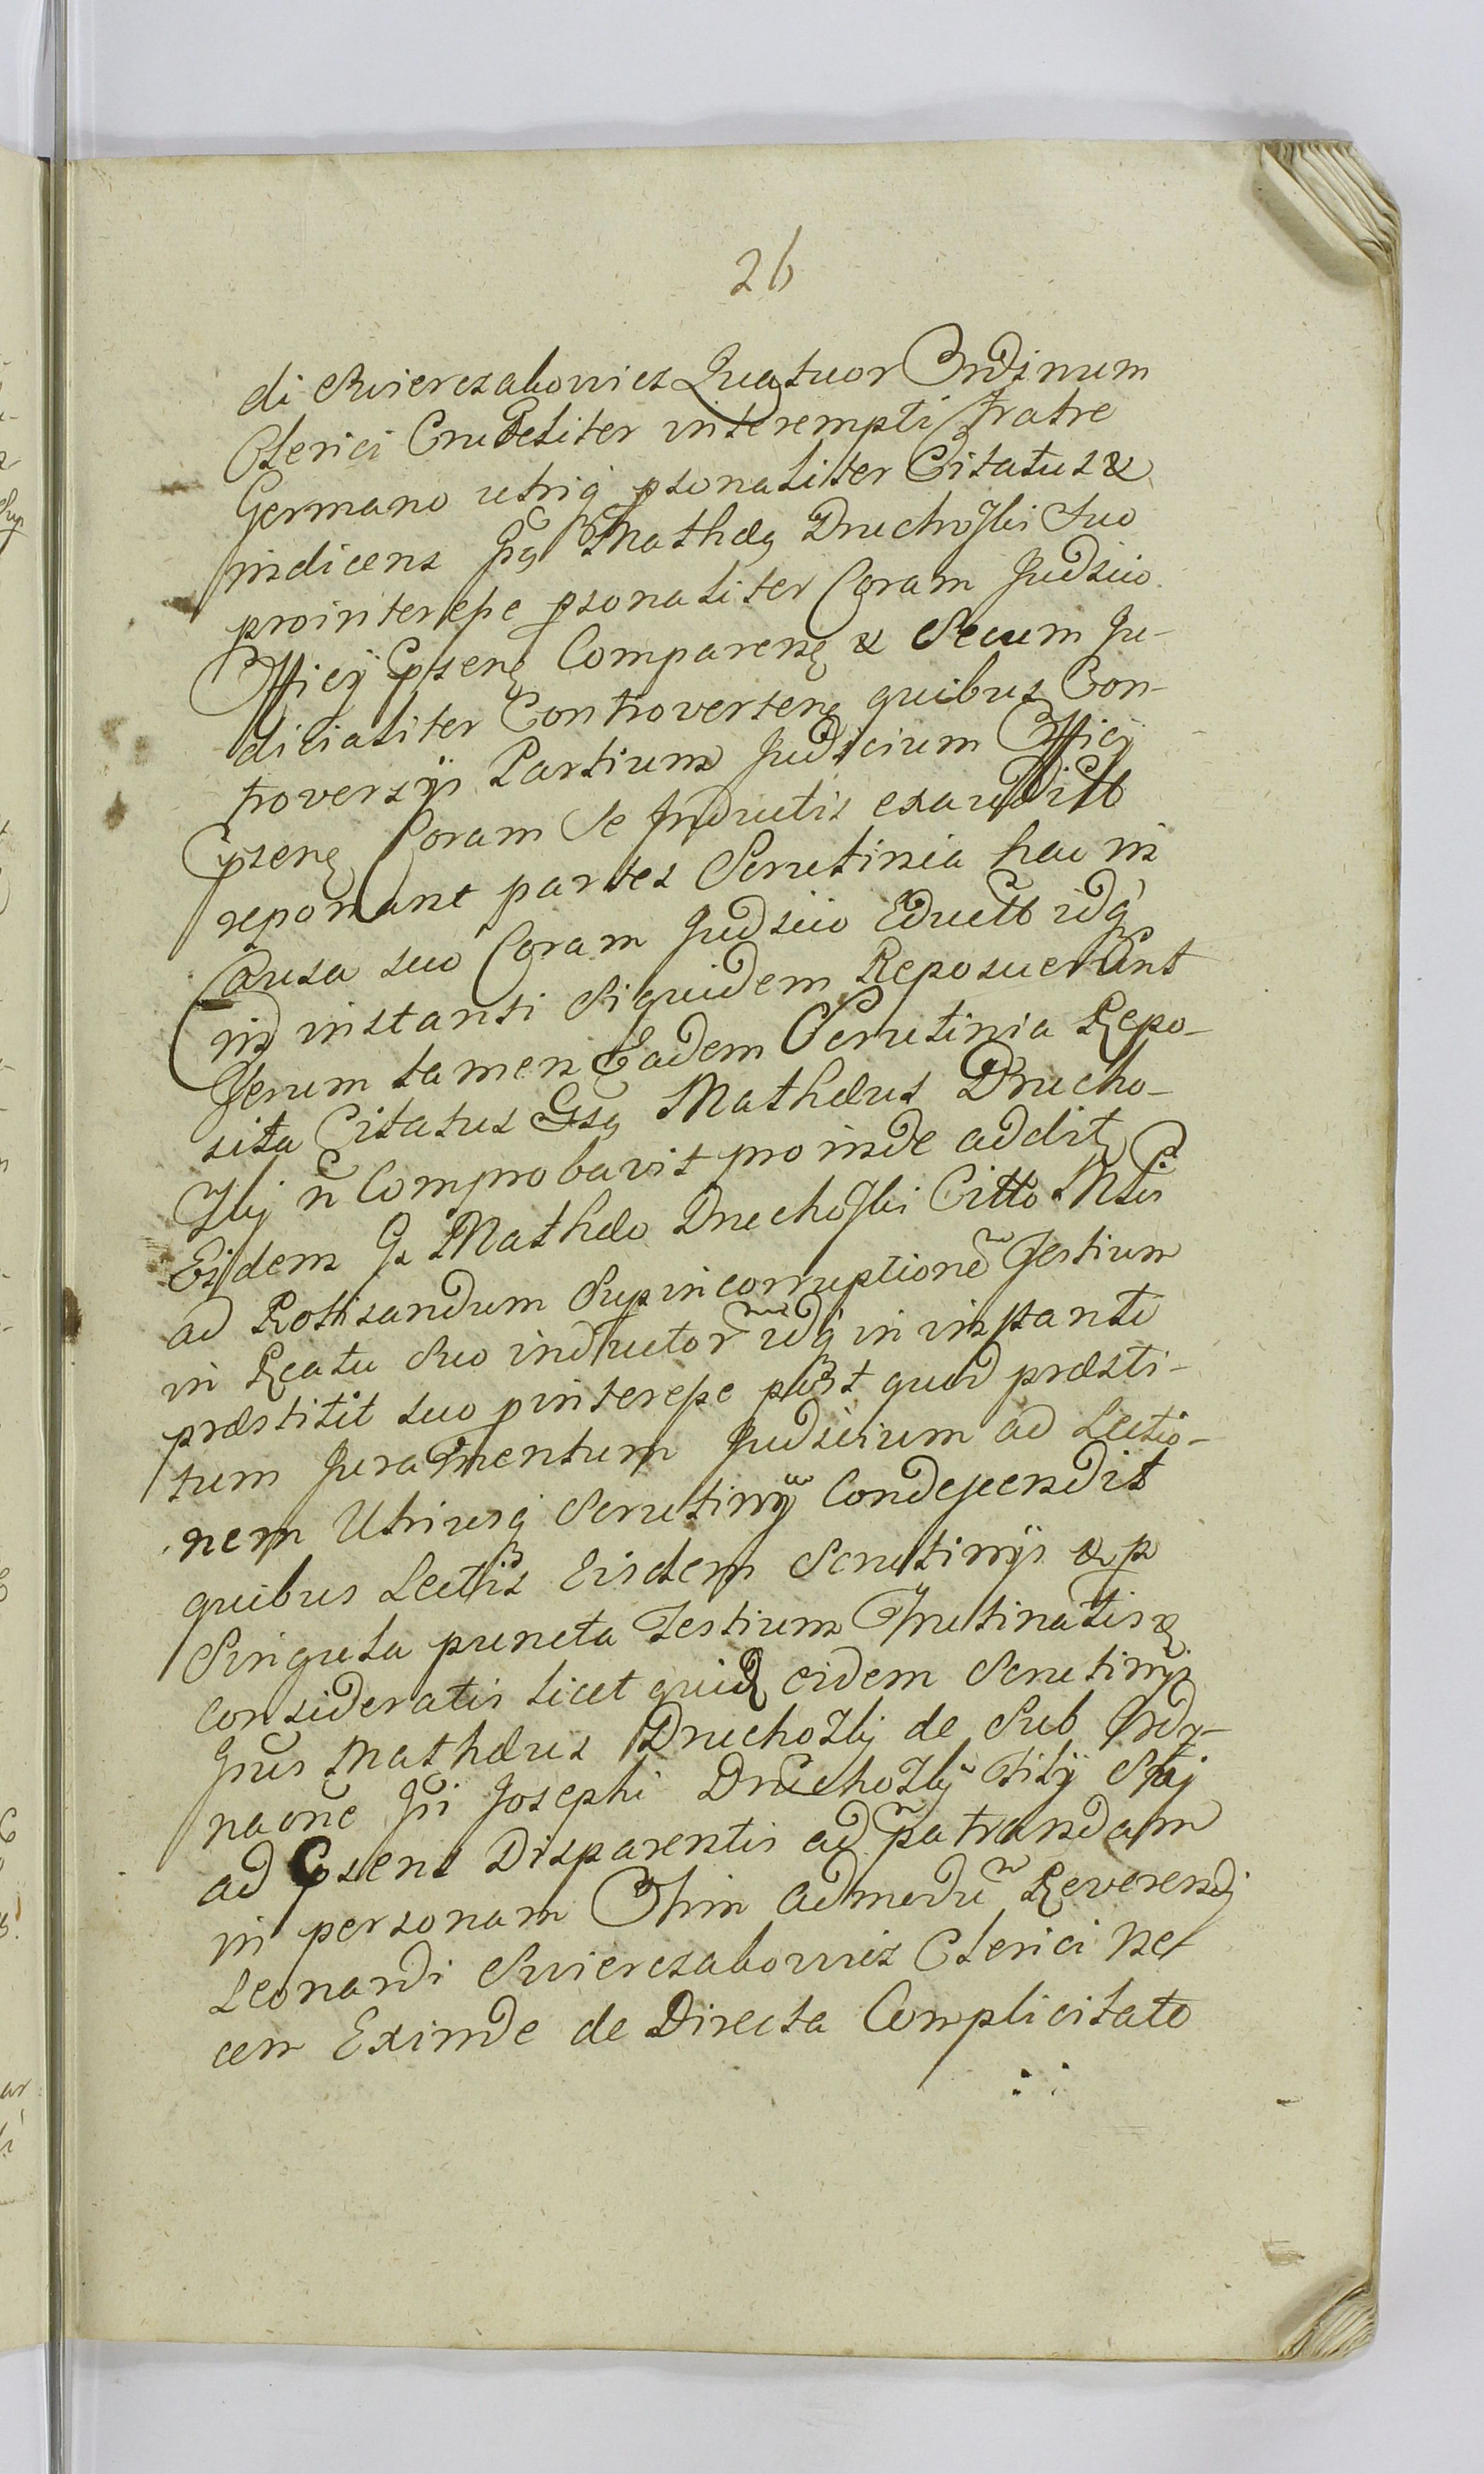 26
di Swierczabowicz Quatuor Ordinum
Clerici Crudeliter interempti fratre
Germano utriq psonaliter Citatus &
indicens Gs Mathæs Druchoski suo
prointeresse psonaliter Coram Judicio
Officij psens Comparens & Secum Ju-
dicialiter Controvertens quibus Con-
troversijs Partium Judicium Officij
psens Coram Se Inductis exauditt
reponant partes Scrutinia hac in
Causa suo Coram Judicio Eductt idq
in instanti Siquidem Reposuerunt
Verum tamen Eadem Scrutinia Repo-
sita Citatus Gsq Mathæus Drucho-
ski n Comprobavit proinde addit
Eidem G. Mathæo Druchoski Citto
ad Rottisandum Sup incorruptione Testium
in Reatu Suo inductor idq in instanti
præstitit suo pinteresse post quod præsti-
tum Juramentum Judicium ad Lectio-
nem Utriusq Scrutinij Condescendit
quibus Lectis Eisdem Scrutinijs & p
Singula puncta Testium Trutinatis &
consideratis licet quid eidem Scrutinijs
Gnus Mathæus Druchoski de Sub Ordy-
naone Gni Josephi Druchoski Filij Sui
ad psens Disparentis ad patrandam
in personam Olim admodu Reverendi
Leonardi Swierczabowicz Clerici ne
cem Exinde de Directa Complicitate